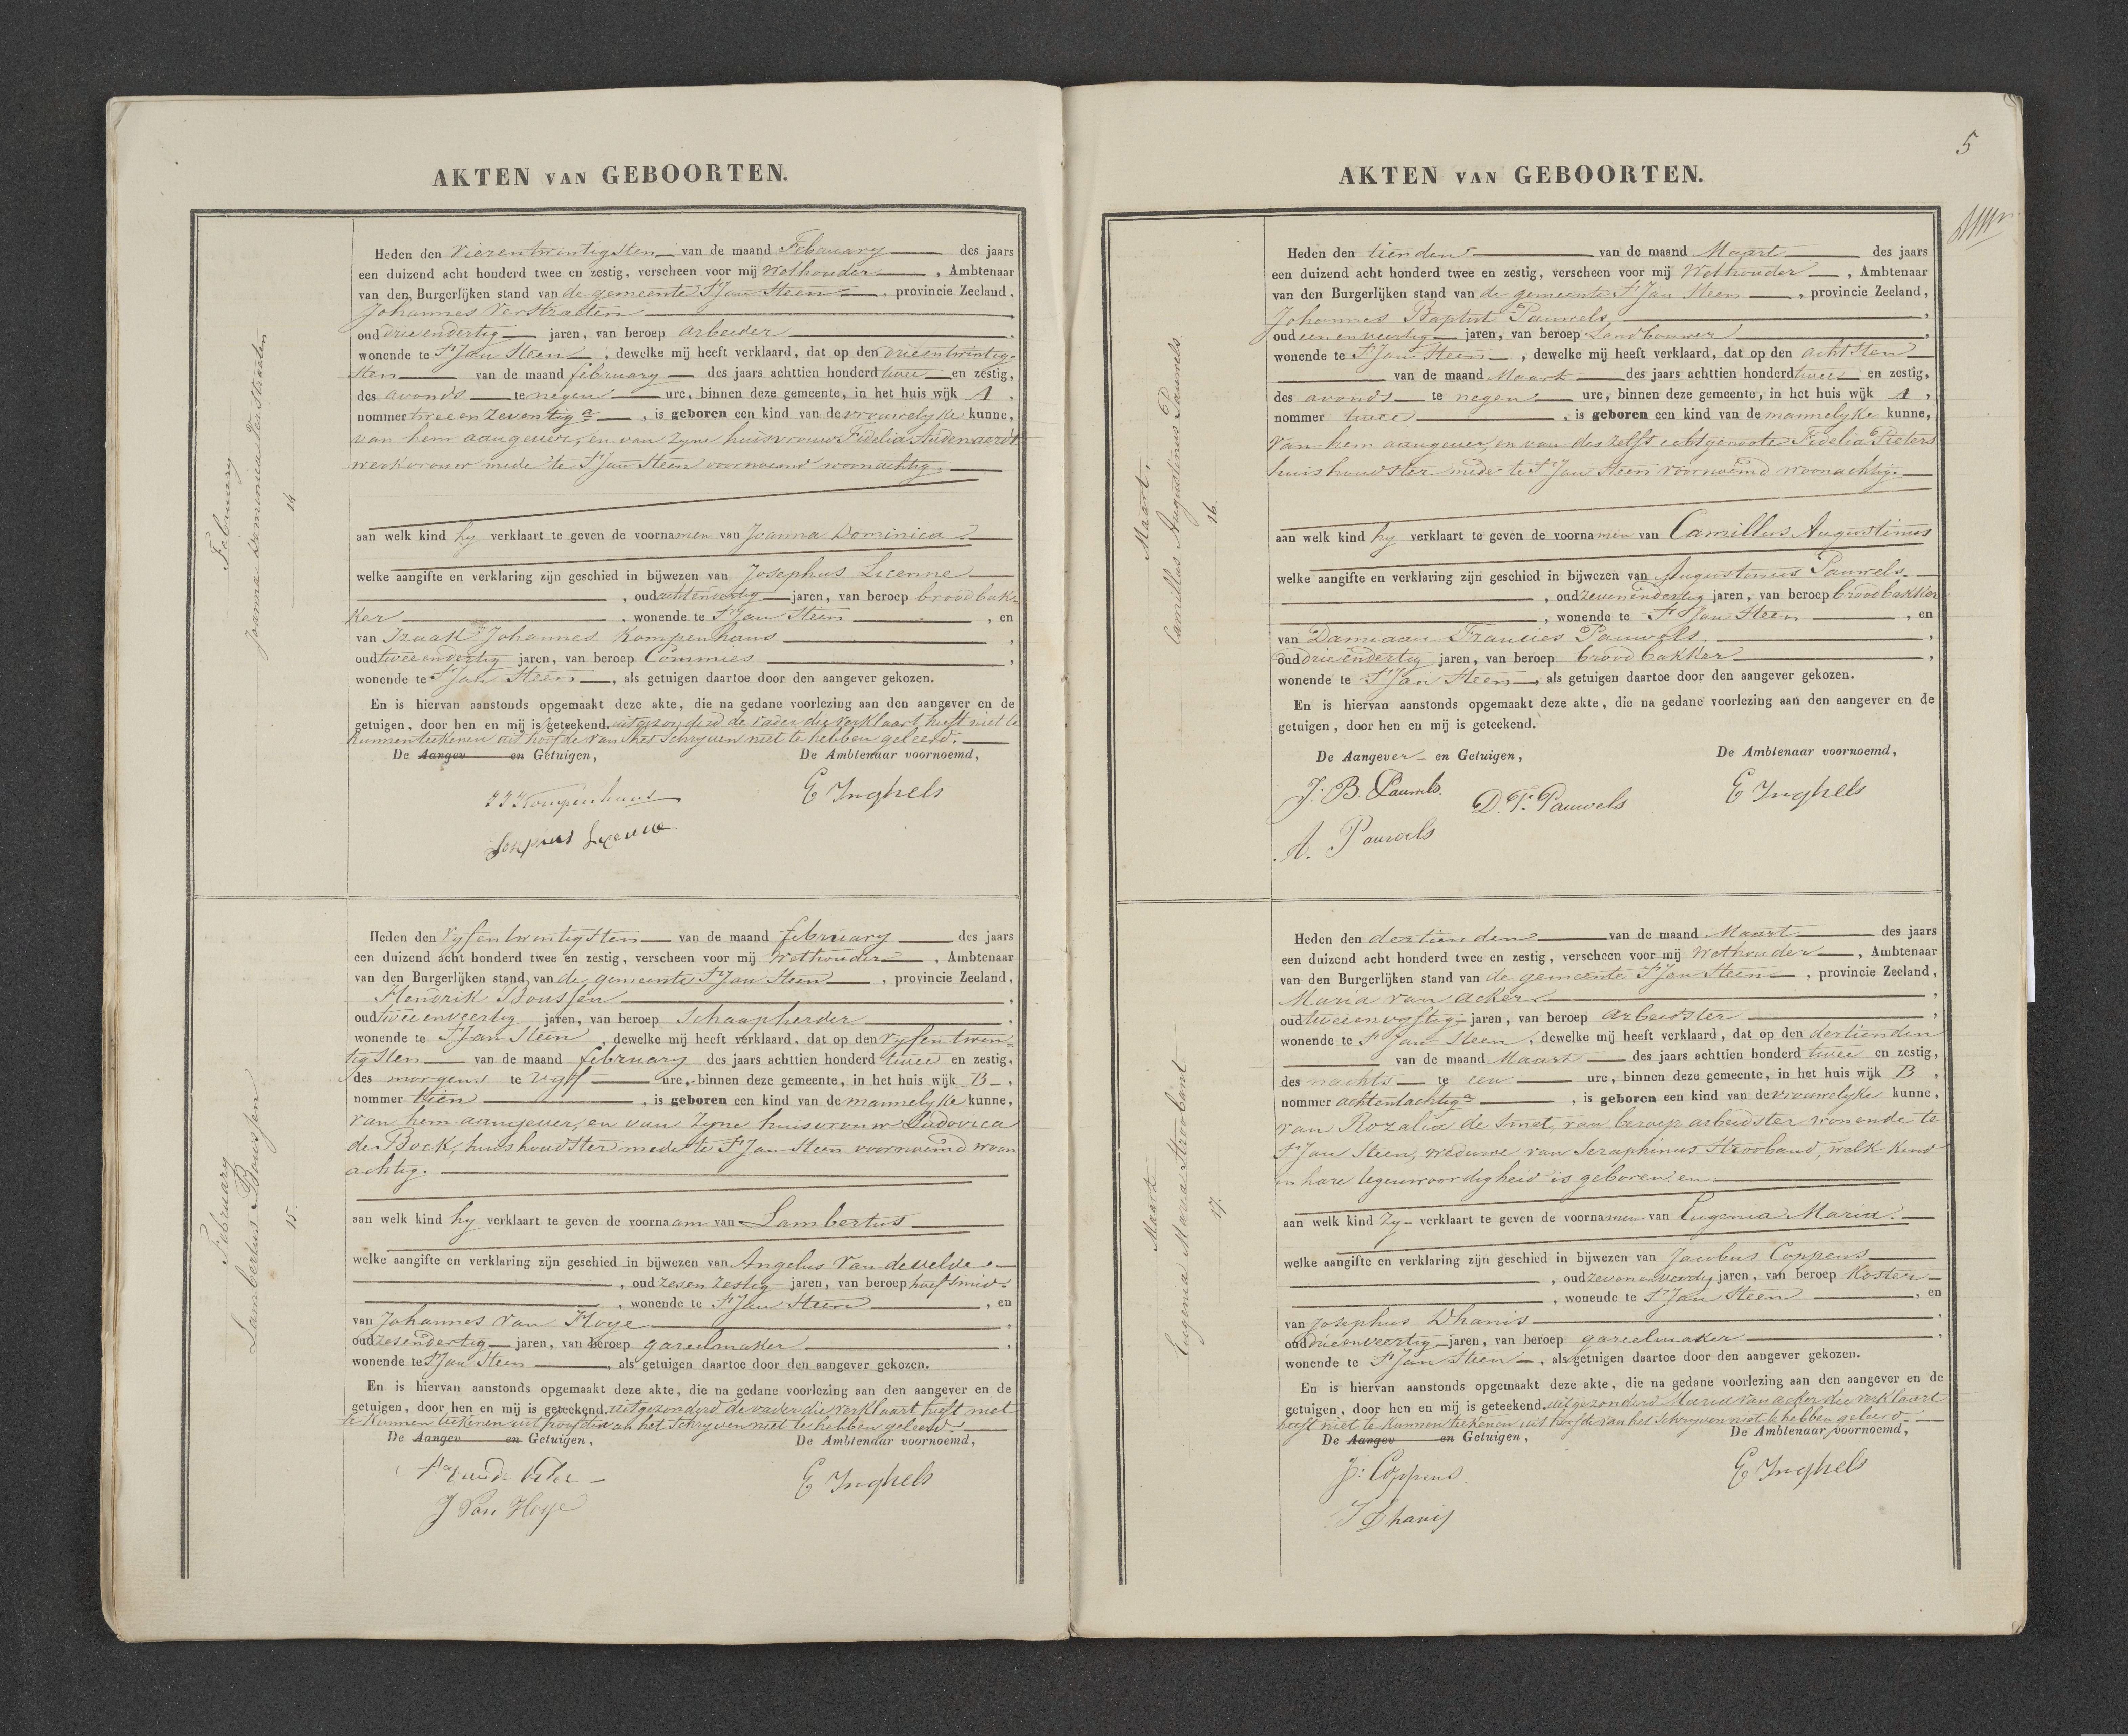 AKTEN VAN GEBOORTEN.
February
Joanna Dominica Verstraeten
14
Heden den Vierentwintigsten van de maand February des jaars
een duizend acht honderd twee en zestig, verscheen voor mij Wethouder, Ambtenaar
van den Burgerlijken stand van de gemeente St Jan Steen, provincie Zeeland,
Johannes Verstraeten,
oud drieendertig jaren, van beroep arbeider,
wonende te St Jan Steen, dewelke mij heeft verklaard, dat op den drieentwintig-
sten van de maand february des jaars achttien honderd twee en zestig,
des avonds te negen ure, binnen deze gemeente, in het huis wijk A,
nommer twee en zeventig a, is geboren een kind van de vrouwelyke kunne,
van hem aangever, en van zyne huisvrouw Fidelia Audenaerdt
werkvrouw mede te St Jan Steen voornoemd woonachtig.
aan welk kind hy verklaart te geven de voornamen van Joanna Dominica.
welke aangifte en verklaring zijn geschied in bijwezen van Josephus Licenne
, oud achtenveertig jaren, van beroep broodbak-
ker, wonende te St Jan Steen, en
van Izaak Johannes Kompenhans,
oud tweeendertig jaren, van beroep Commies,
wonende te St Jan Steen, als getuigen daartoe door den aangever gekozen.
En is hiervan aanstonds opgemaakt deze akte, die na gedane voorlezing aan den aangever en de
getuigen, door hen en mij is geteekend, uitgezonderd de vader die verklaart heeft niet te
kunnen teekenen uit hoofde van het schryven niet te hebben geleerd.
De Aangev en Getuigen, De Ambtenaar voornoemd,
I J Kompenhans E Inghels
February
Lambertus Boussen
15.
Heden den Vyfentwintigsten van de maand february des jaars
een duizend acht honderd twee en zestig, verscheen voor mij Wethouder, Ambtenaar
van den Burgerlijken stand van de gemeente St Jan Steen, provincie Zeeland,
Hendrik Boussen,
oud tweeenveertig jaren, van beroep Schaapherder,
wonende te St Jan Steen, dewelke mij heeft verklaard, dat op den vyfentwin-
tigsten van de maand february des jaars achttien honderd twee en zestig,
des morgens te vyf ure, binnen deze gemeente, in het huis wijk B,
nommer tien, is geboren een kind van de mannelyke kunne,
van hem aangever, en van zyne huisvrouw Ludovica
de Bock, huishoudster mede te St Jan Steen voornoemd woon
achtig.
aan welk kind hy verklaart te geven de voornaam van Lambertus
welke aangifte en verklaring zijn geschied in bijwezen van Angelus Vandevelde
, oud zesenzestig jaren, van beroep hoefsmid
, wonende te St Jan Steen, en
van Johannes Van Hoye,
oud zesendertig jaren, van beroep gareelmaker,
wonende te St Jan Steen, als getuigen daartoe door den aangever gekozen.
En is hiervan aanstonds opgemaakt deze akte, die na gedane voorlezing aan den aangever en de
getuigen, door hen en mij is geteekend, uitgezonderd de vader die verklaart heeft niet
te kunnen teekenen uit hoofde van het schryven niet te hebben geleerd.
De Aangev en Getuigen, De Ambtenaar voornoemd,
E Inghels
J Van Hoye
5
AKTEN VAN GEBOORTEN.
Maart.
Camillus Augustinus Pauwels.
16.
Heden den tienden van de maand Maart des jaars
een duizend acht honderd twee en zestig, verscheen voor mij Wethouder, Ambtenaar
van den Burgerlijken stand van de gemeente St Jan Steen, provincie Zeeland,
Johannes Baptist Pauwels,
oud eenenveertig jaren, van beroep Landbouwer,
wonende te St Jan Steen, dewelke mij heeft verklaard, dat op den achtsten
van de maand Maart des jaars achttien honderd twee en zestig,
des avonds te negen ure, binnen deze gemeente, in het huis wijk A,
nommer twee, is geboren een kind van de mannelyke kunne,
van hem aangever, en van deszelfs echtgenoote Fidelia Pieters
huishoudster mede te St Jan Steen voornoemd woonachtig.
aan welk kind hy verklaart te geven de voornamen van Camillus Augustinus
welke aangifte en verklaring zijn geschied in bijwezen van Augustinus Pauwels.
, oud zevenendertig jaren, van beroep broodbakker
, wonende te St Jan Steen, en
van Damiaan Francies Pauwels,
oud drieendertig jaren, van beroep broodbakker,
wonende te St Jan Steen, als getuigen daartoe door den aangever gekozen.
En is hiervan aanstonds opgemaakt deze akte, die na gedane voorlezing aan den aangever en de
getuigen, door hen en mij is geteekend.
De Aangever en Getuigen, De Ambtenaar voornoemd,
J. B. Pauwels. D. F. Pauwels E Inghels
A. Pauwels
Maart
Eugenia Maria Stroobant
17.
Heden den dertienden van de maand Maart des jaars
een duizend acht honderd twee en zestig, verscheen voor mij Wethouder, Ambtenaar
van den Burgerlijken stand van de gemeente St Jan Steen, provincie Zeeland,
Maria van acker,
oud tweeenvyftig jaren, van beroep arbeidster,
wonende te St Jan Steen, dewelke mij heeft verklaard, dat op den dertienden
van de maand Maart des jaars achttien honderd twee en zestig,
des nachts te een ure, binnen deze gemeente, in het huis wijk B,
nommer achtentachtig a, is geboren een kind van de vrouwelyke kunne,
van Rozalia de Smet, van beroep arbeidster wonende te
St Jan Steen, weduwe van Seraphinus Strooband, welk kind
in hare tegenwoordigheid is geboren, en
aan welk kind zy verklaart te geven de voornamen van Eugenia Maria.
welke aangifte en verklaring zijn geschied in bijwezen van Jacobus Coppens
, oud zevenenveertig jaren, van beroep Koster
, wonende te St Jan Steen, en
van Josephus Dhanis,
oud drieenveertig jaren, van beroep gareelmaker,
wonende te St Jan Steen, als getuigen daartoe door den aangever gekozen.
En is hiervan aanstonds opgemaakt deze akte, die na gedane voorlezing aan den aangever en de
getuigen, door hen en mij is geteekend, uitgezonderd Maria van acker die verklaart
heeft niet te kunnen teekenen uit hoofde van het schryven niet te hebben geleerd.
De Aangev en Getuigen, De Ambtenaar voornoemd,
J. Coppens E Inghels
J Dhanis